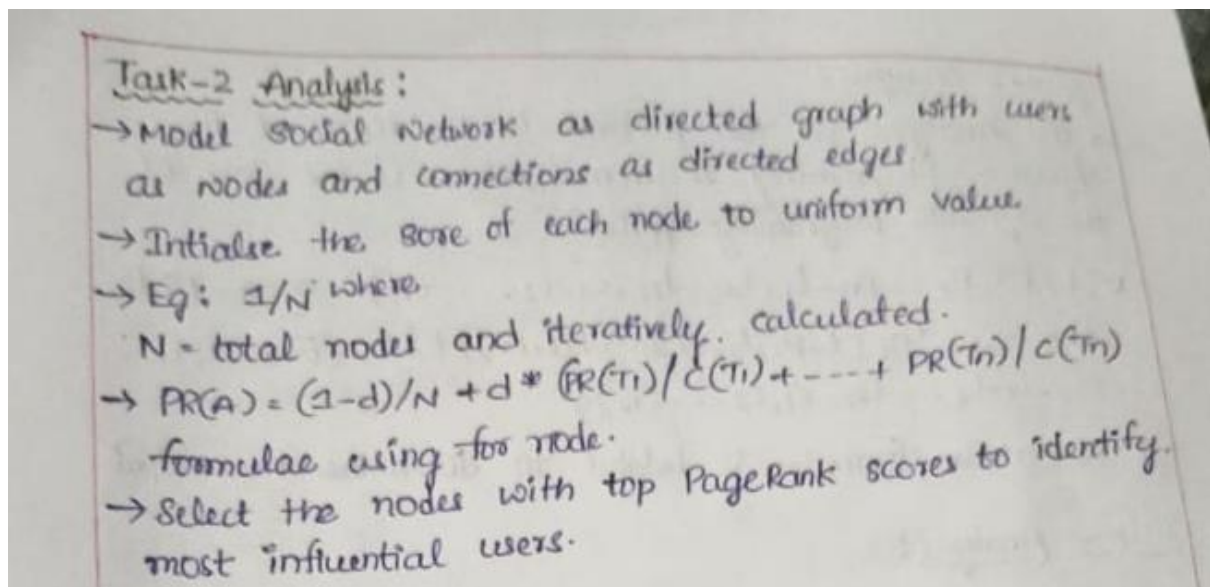 Task-2 Analysis:
→ Model social Network as directed graph with users
as nodes and connections as directed edges.
→ Intialse the sore of each node to uniform value
→ Eg: 1/N where
N - total nodes and iteratively. calculated.
→ PR(A) = (1-d)/N + d * (PR(T1)/C(T1) + ---- + PR(Tn)/C(Tn)
formulae using for node.
→ Select the nodes with top PageRank scores to identify.
most influential users.